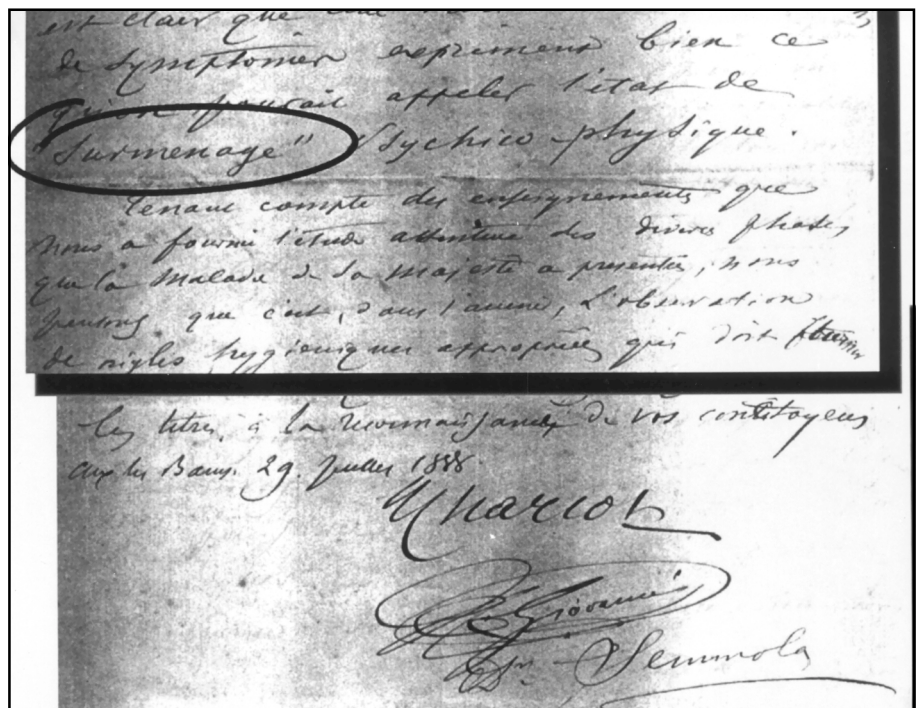 est clair que
de symptomes expriment bien ce
qu'on pourait appeler l'état de
"Surmenage" Psychico-physique.
Tenant compte des enseignements que
nous a fourni l'étude attentive des divers phases
que la maladie de Sa Majesté a presentés, nous
pensons que c'est, dans l'avenir, l'observation
de règles hygieniques appropriées qui doit
les titres, à la reconnaissance de vos concitoyens
Aix les Bains 29. Juillet 1888.
Charcot
De Giovanni
Semmola